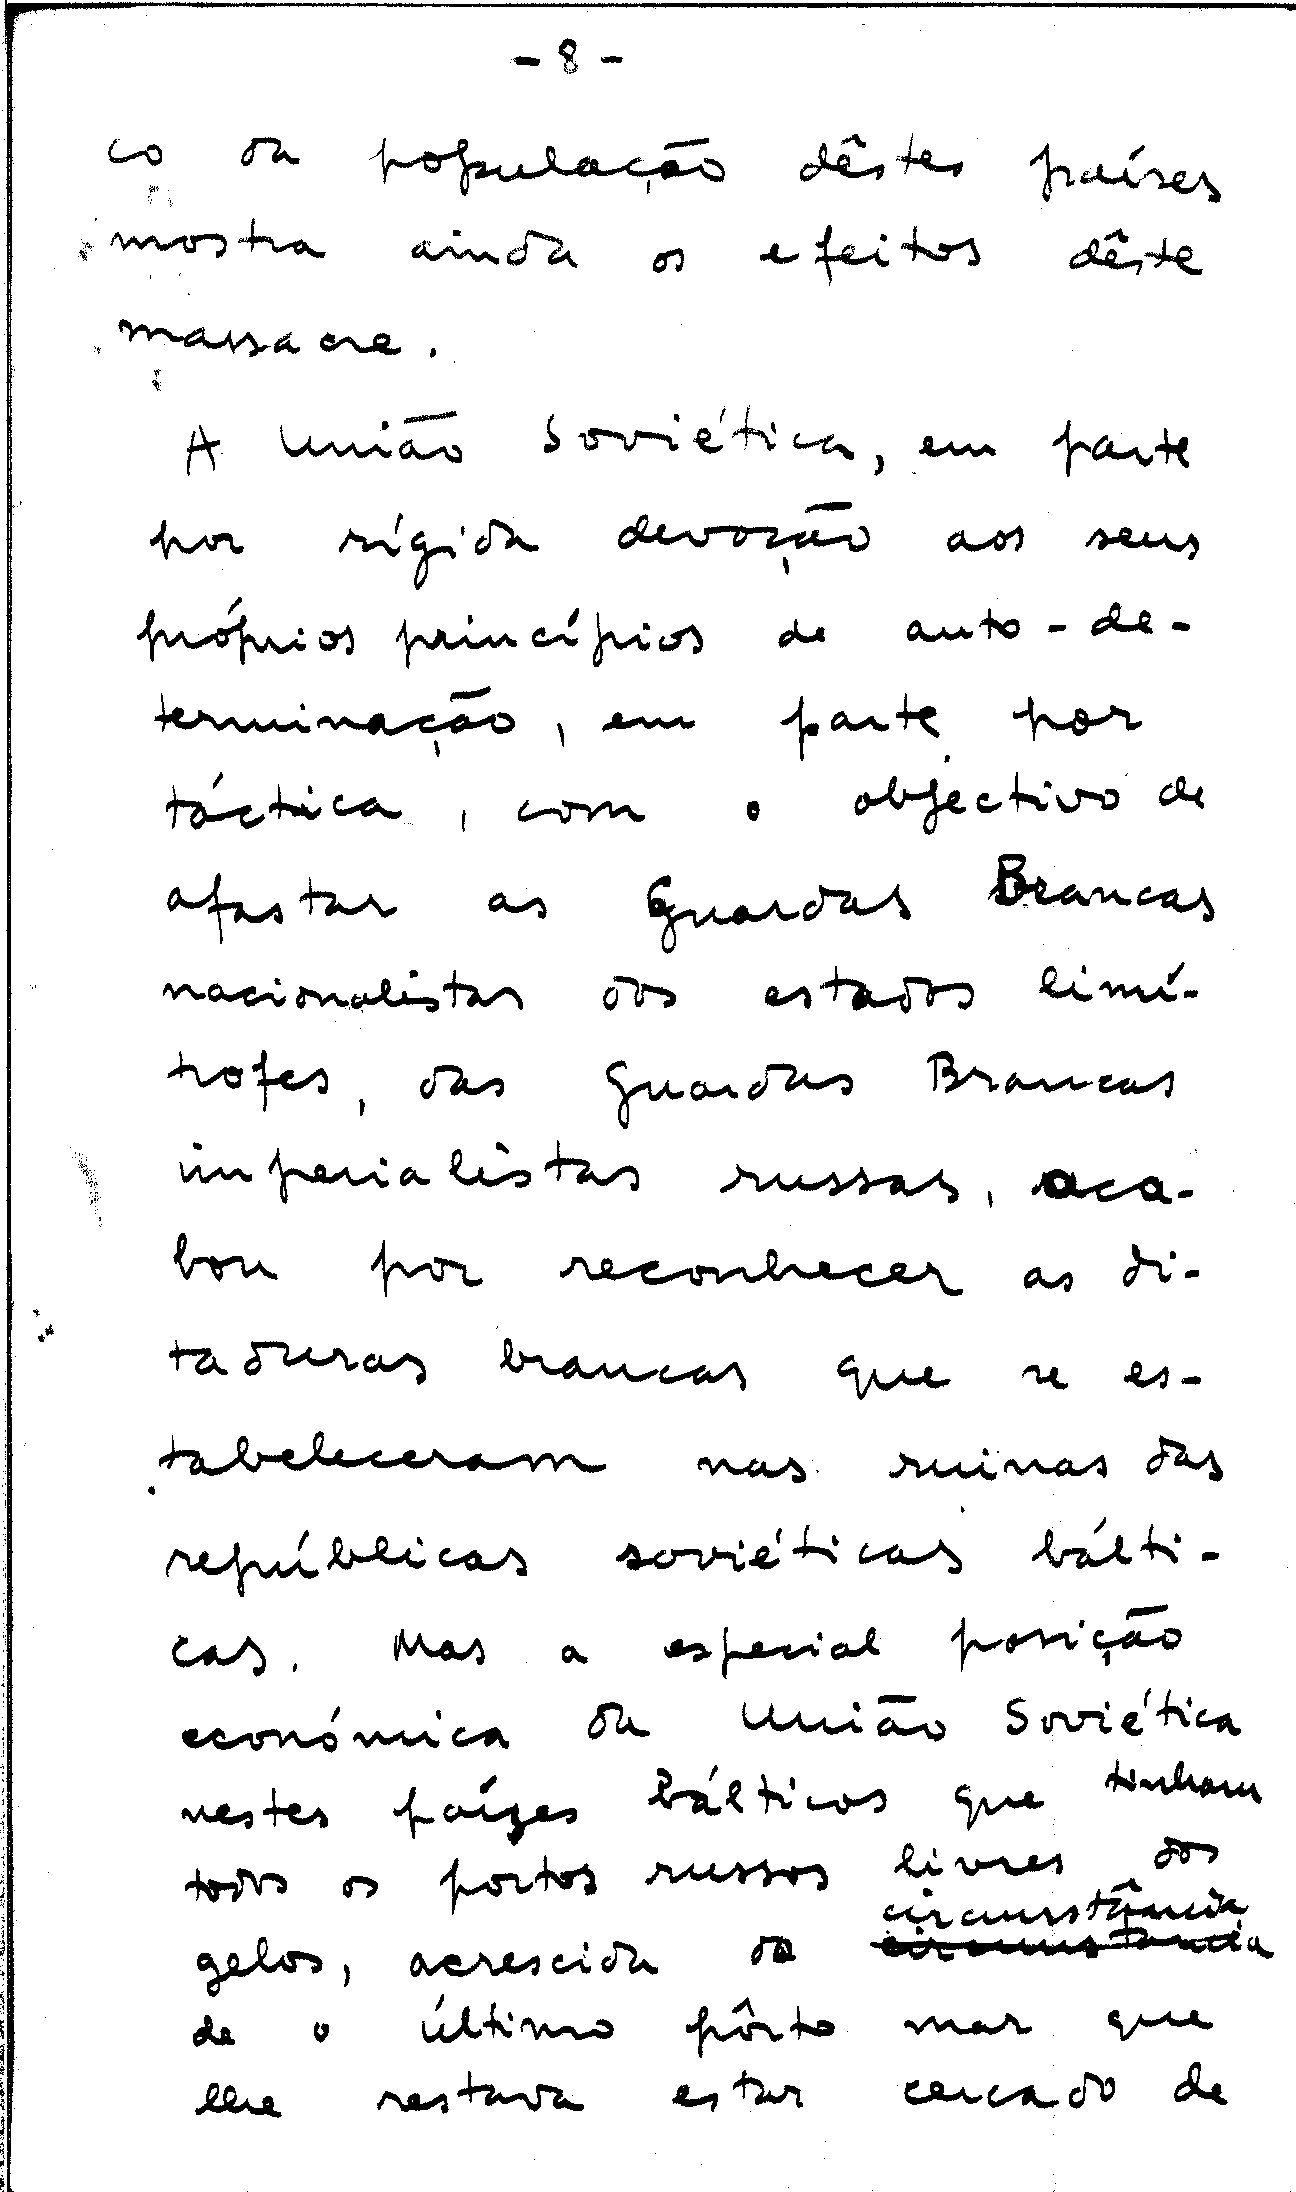 - 8 -
co da população dêstes países
mostra ainda os efeitos dêste
massacre.
A União Soviética, em parte
por rígida devoção aos seus
próprios princípios de auto-de-
terminação, em parte por
táctica, com o objectivo de
afastar as Guardas Brancas
nacionalistas dos estados limí-
trofes, das Guardas Brancas
imperialistas russas, aca-
bou por reconhecer as di-
taduras brancas que se es-
tabeleceram nas ruinas das
repúblicas soviéticas bálti-
cas. Mas a especial posição
económica da União Soviética
nestes países bálticos que tinham
todos os portos russos livres dos
circunstância
gelos, acrescida da circunstancia
de o último pôrto mar que
lhe restava estar cercado de